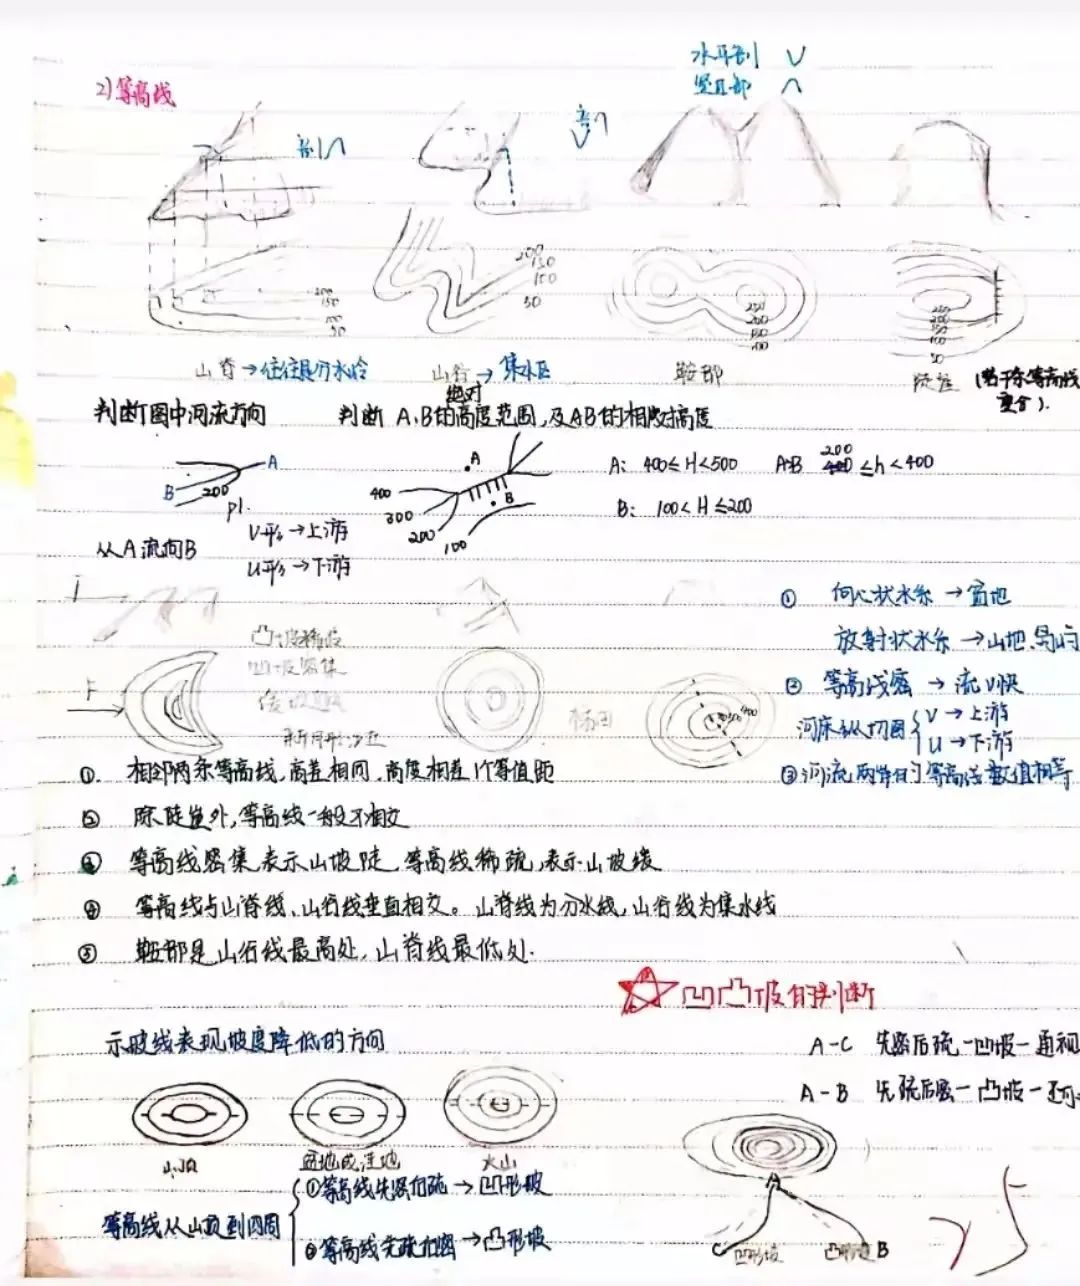 水平剖 V
竖直剖 ∧
2)等高线
剖∧
剖∧
V
200
150
100
50
200
150
100
50
250
200
150
100
250
200
150
100
50
山脊→往往是分水岭
山谷→集水区
鞍部
陡崖(若干条等高线
重合).
绝对
判断图中河流方向
判断 A、B的高度范围,及AB的相对高度
A
B
200
从A流向B
V形→上游
U形→下游
A
B
400
300
200
100
A: 400≤H<500
AB 200≤h<400
B: 100<H≤200
① 向心状水系→盆地
放射状水系→山地、岛屿
② 等高线密→流V快
河床纵切图{V→上游
U→下游
③河流两岸的等高线数值相等
凸坡稀疏
凹坡密集
新月形沙丘
梯田
①. 相邻两条等高线,高差相同,高度相差1个等值距
② 除陡崖外,等高线一般不相交
③ 等高线密集表示山坡陡,等高线稀疏,表示山坡缓
④ 等高线与山脊线、山谷线垂直相交。山脊线为分水线,山谷线为集水线
⑤ 鞍部是山谷线最高处,山脊线最低处.
凹凸坡的判断
示坡线表现坡度降低的方向
A-C 先密后疏-凹坡-通视
A-B 先疏后密-凸坡-
山顶
盆地或洼地
火山
等高线从山顶到四周
①等高线先密后疏→凹形坡
②等高线先疏后密→凸形坡
A
C
凹形坡
凸形坡
B